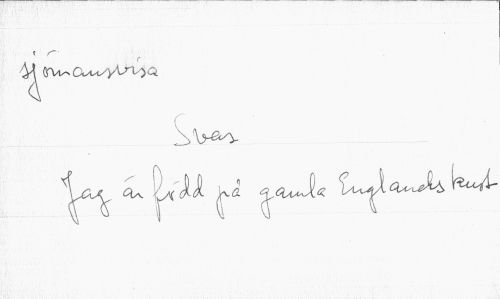 sjömansvisa
Svar
Jag är född på gamla Englands kust